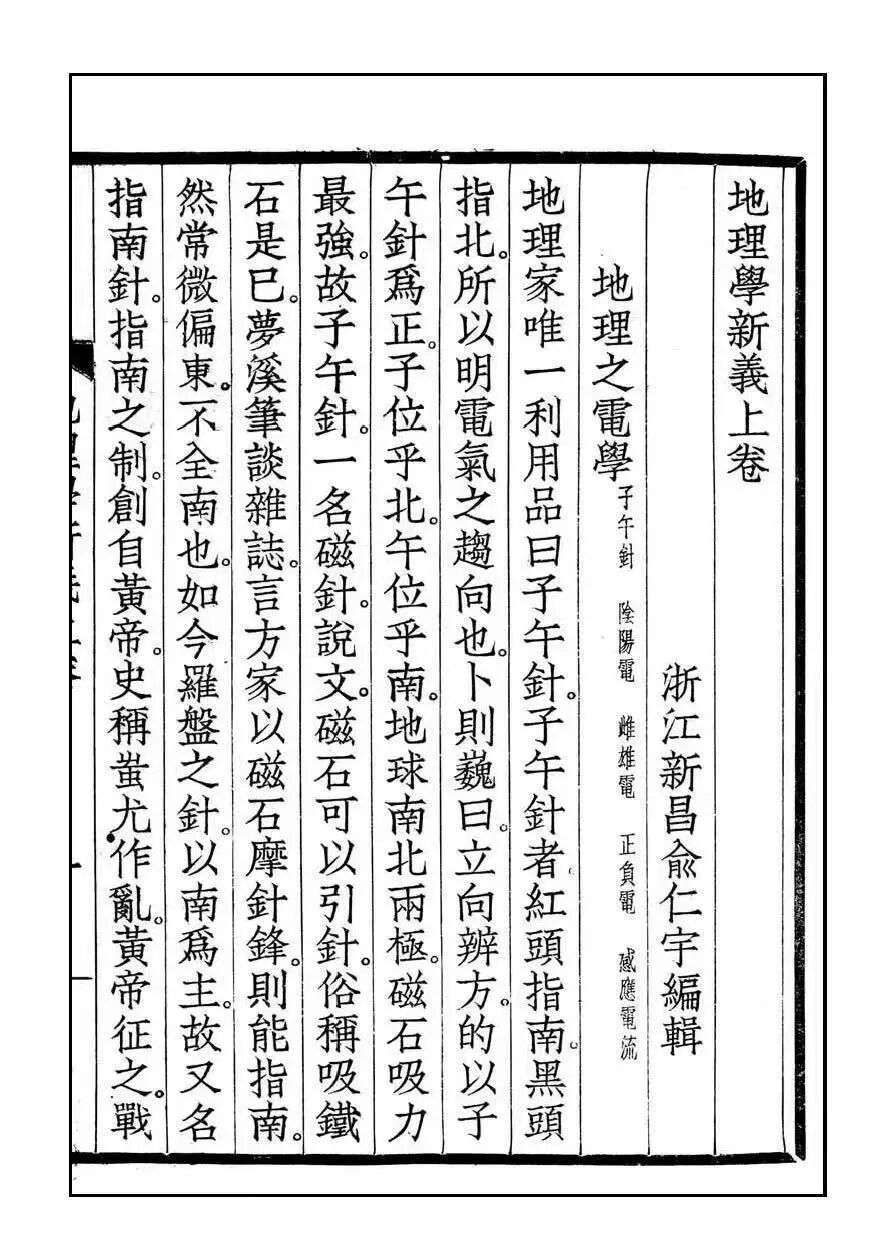 地理學新義上卷
浙江新昌俞仁宇編輯
地理之電學 子午針 陰陽電 雌雄電 正負電 感應電流
地理家唯一利用品曰子午針。子午針者紅頭指南。黑頭
指北。所以明電氣之趨向也。卜則巍曰。立向辨方。的以子
午針爲正。子位乎北。午位乎南。地球南北兩極。磁石吸力
最強。故子午針。一名磁針。說文。磁石可以引針。俗稱吸鐵
石是已。夢溪筆談雜誌。言方家以磁石摩針鋒。則能指南。
然常微偏東。不全南也。如今羅盤之針。以南爲主。故又名
指南針。指南之制。創自黃帝。史稱蚩尤作亂。黃帝征之。戰